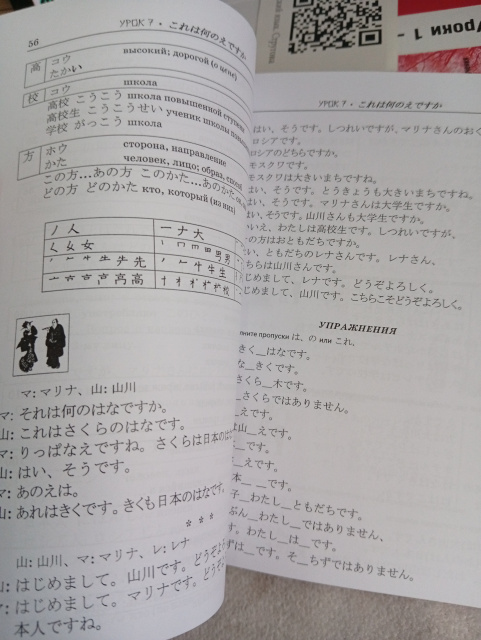 56
УРОК 7 • これは何のえですか
高 コウ высокий; дорогой (о цене)
たかい
校 コウ школа
高校 こうこう школа повышенной ступени
高校生 こうこうせい ученик школы
学校 がっこう школа
方 ホウ сторона, направление
かた человек, лицо; образ, способ
この方…あの方 このかた…あのかた
どの方 どのかた кто, который (из них)
ノ人
一ナ大
く女女
先
牛生
高
校
マ: マリナ、山: 山川
マ: それは何のはなですか。
山: これはさくらのはなです。
マ: りっぱなえですね。さくらは日本のはな
山: はい、そうです。
マ: あのえは。
山: あれはきくです。きくも日本のはなです。
* * *
山: 山川、マ: マリナ、レ: レナ
山: はじめまして。山川です。どうぞよろ
マ: はじめまして。マリナです。どうぞ
本人ですね。
Уроки 1 -
УРОК 7 • これは何のえですか
はい、そうです。しつれいですが、マリナさんのおく
ロシアです。
ロシアのどちらですか。
モスクワです。
モスクワは大きいまちですね。
はい、そうです。とうきょうも大きいまちですね。
い、そうです。マリナさんは大学生ですか。
はい、そうです。山川さんも大学生ですか。
いいえ、わたしは高校生です。しつれいですが、
の方はおともだちですか。
い、ともだちのレナさんです。レナさん、
ちらは山川さんです。
じめまして、レナです。どうぞよろしく。
じめまして、山川です。こちらこそどうぞよろしく。
УПРАЖНЕНИЯ
лните пропуски は、の или これ.
きく__はなです。
な__きくです。
さくら__木です。
__さくらではありません。
えです。
山__えです。
__です。
__えです。
本__ __です。
子__わたし__ともだちです。
ぶん__わたし__ではありません、
す。わたし__は__です。
ずは__です。そ__ちずではありません。